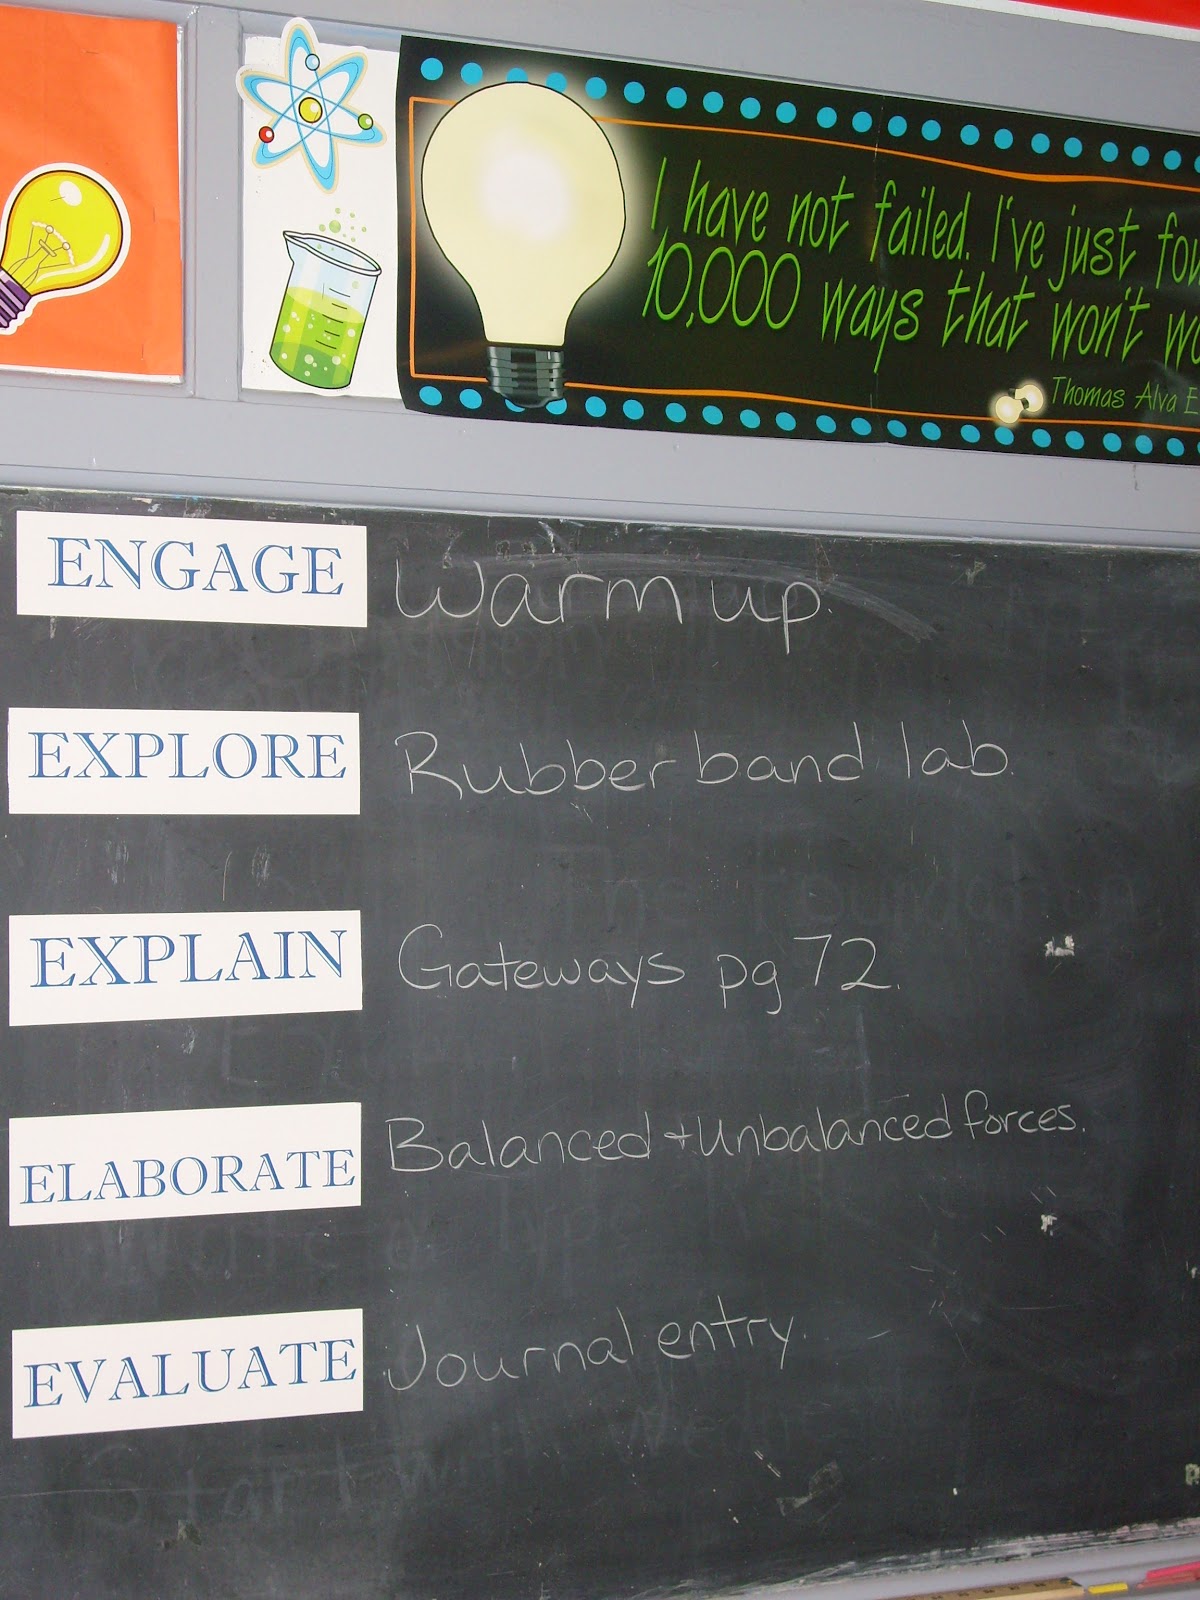 I have not failed. I've just
10,000 ways that won't
Thomas Alva
ENGAGE Warm up.
EXPLORE Rubber band lab.
EXPLAIN Gateways pg 72.
ELABORATE Balanced + Unbalanced forces.
EVALUATE Journal entry.